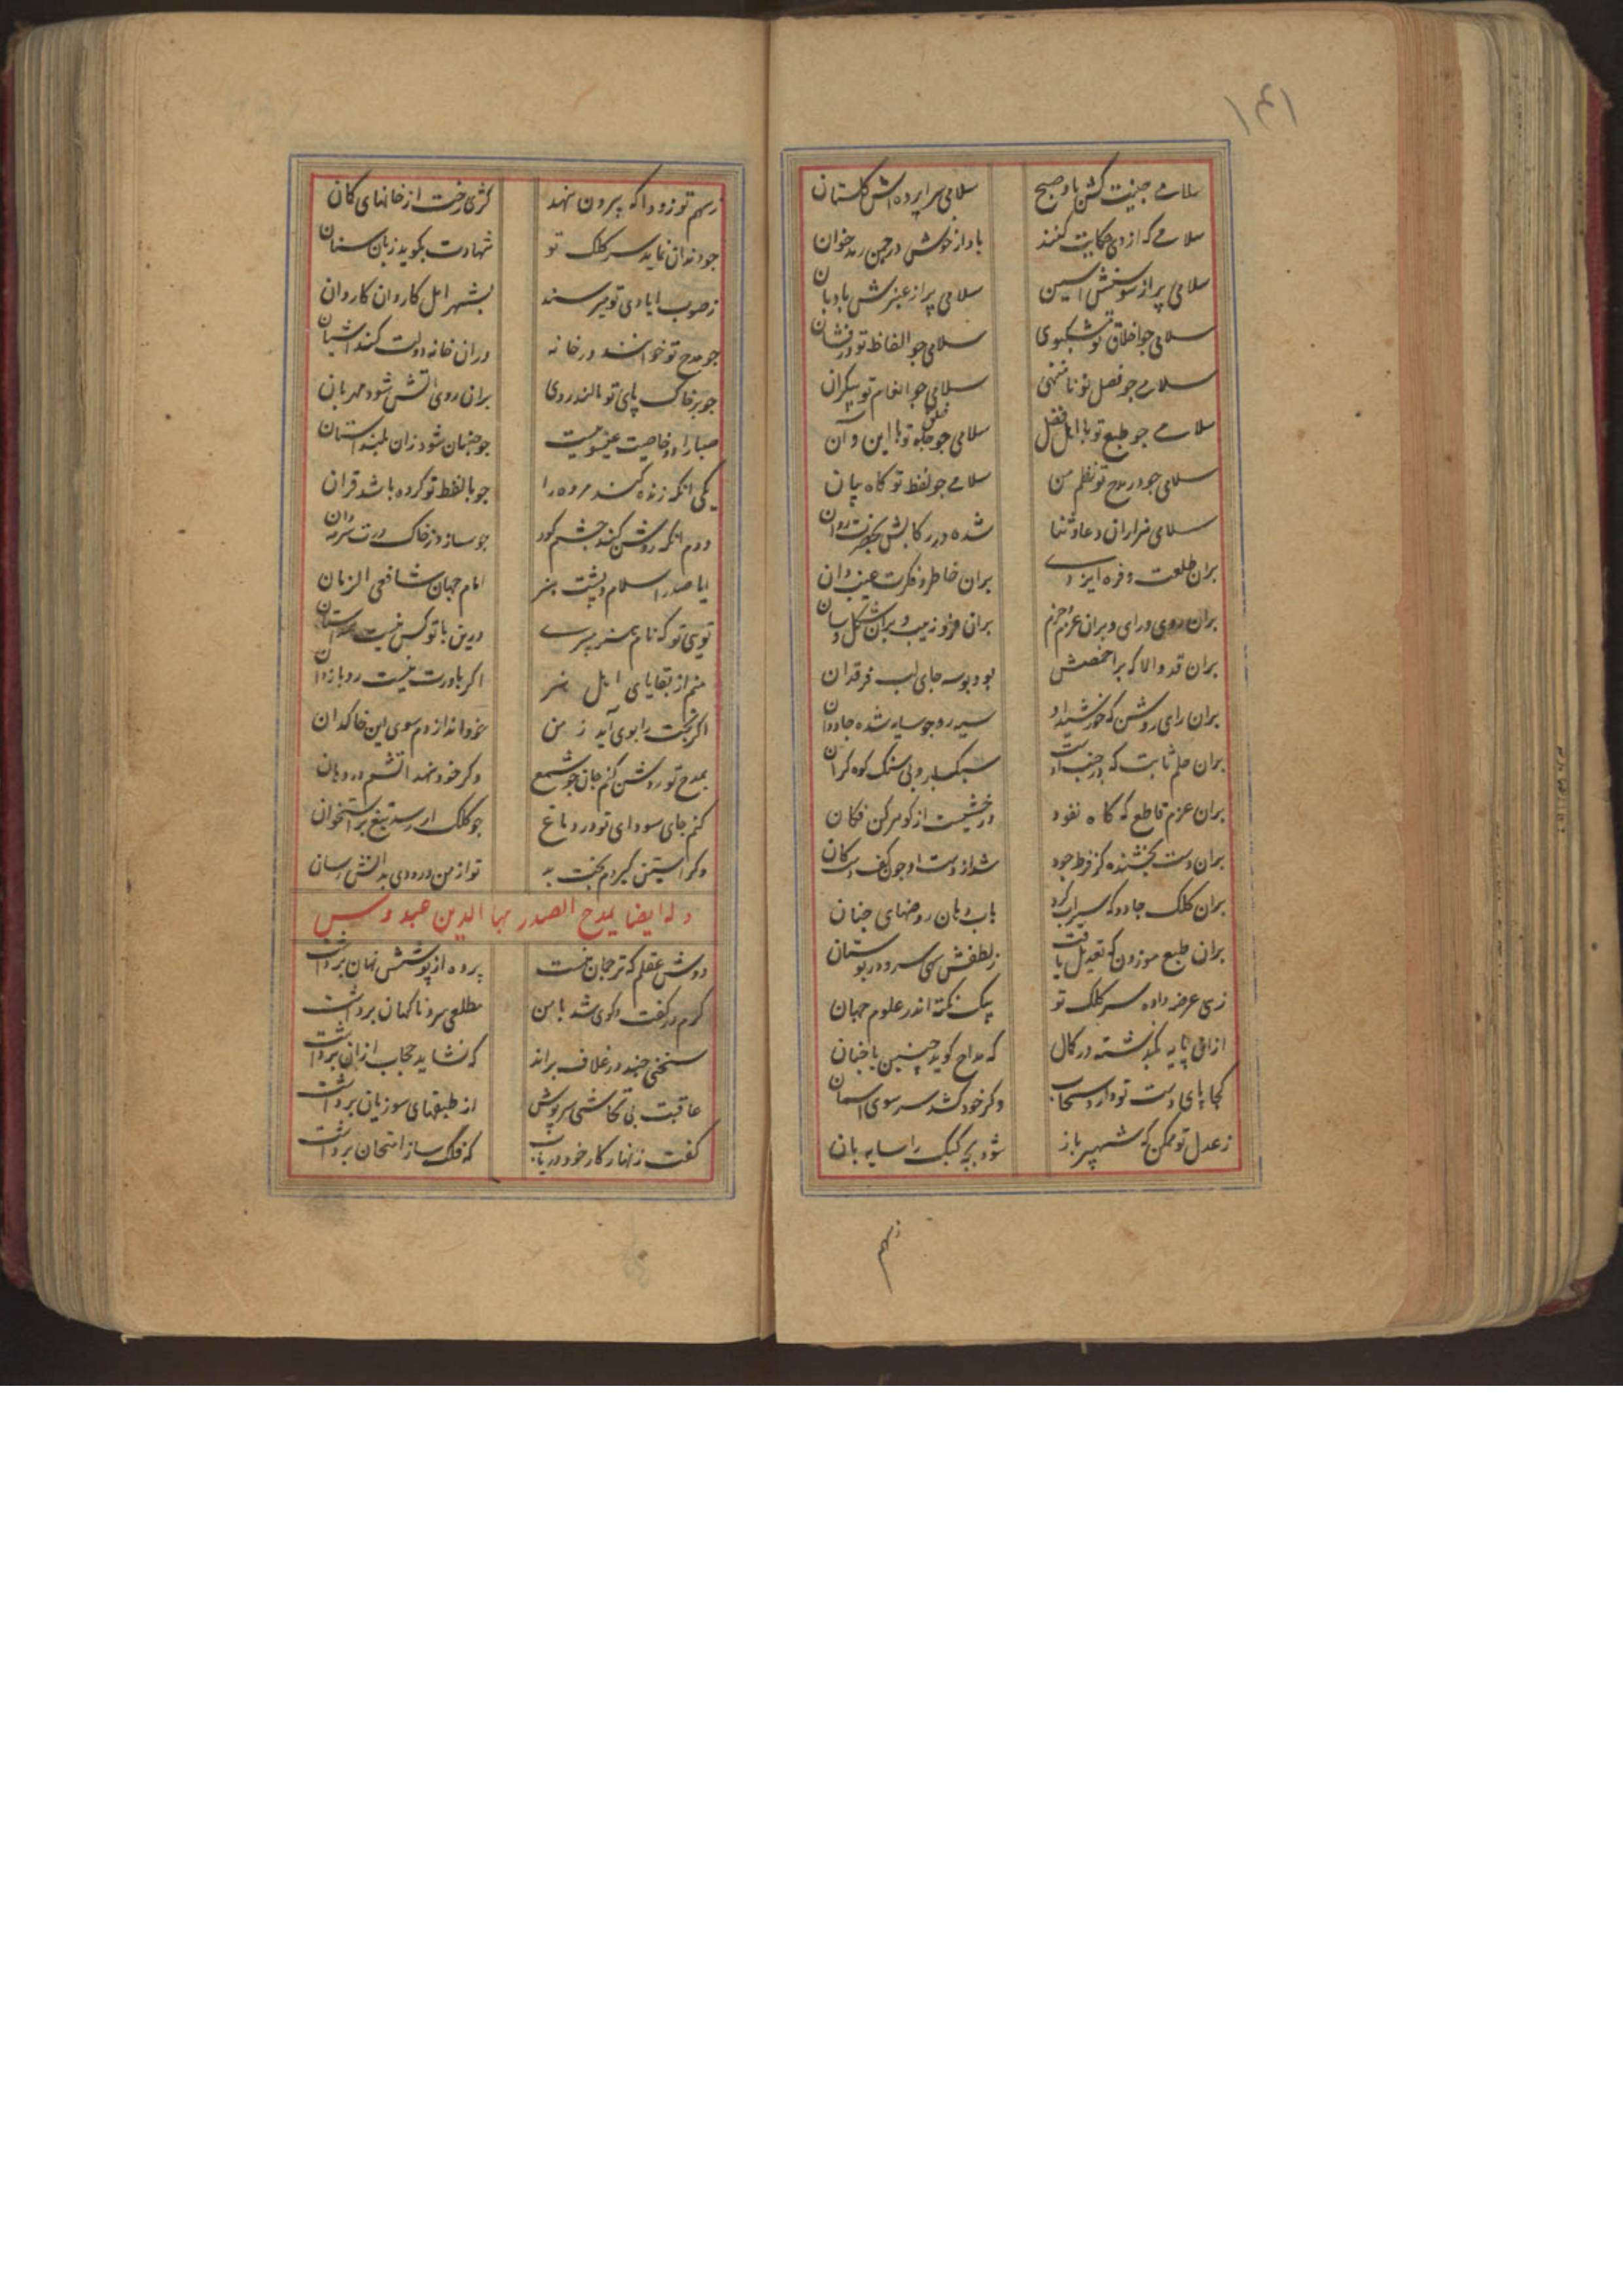 ۱۴۱
سلامے جنیبت کش باد صبح سلامی سراپرده اش گلستان
سلامے که از وی حکایت کنند باواز خوش در چمن زند خوان
سلامی پر از سوسنش آستین سلامی پر از عنبرش بادبان
سلامی جو اخلاق تو مشکبوی سلامی جو الفاظ تو درفشان
سلامے جو فضل تو نا منتهی سلامی جو انعام تو بیکران
سلامے جو طبع تو با اهل فضل سلامی جو خلق تو با این و آن
سلامی جو در مدح تو نظم من سلامے جو لفظ تو کاه بیان
سلامی هزاران دعا و ثنا شده در رکابش بحضرت روان
بران طلعت و فره ایزدے بران خاطر و فکرت غیب دان
بران روی و رای و بران عزم و حزم بران فر و زیب و بران شکل و سان
بران قد والا که بر اخمصش بود بوسه جای لب فرقدان
بران رای روشن که خورشید ازو سیه رو جو سایه شده جاودان
بران حلم ثابت که در جنب اوست سبکبار و بی سنک کوه کران
بران عزم قاطع که کاه نفود درخشیست از کوهر کن فکان
بران دست بخشنده کز فرط جود شد از دست او جون کف دست کان
بران کلک جادو که سیراب کرد باب دهان روضهای جنان
بران طبع موزون که تعدیل یافت ز لطفش سهی سرو در بوستان
زهی عرضه داده سر کلک تو بیک نکته اندر علوم جهان
ازان پایه بکذشته در کمال که مداح کوید چنین یا چنان
کجا پای دست تو دارد سحاب وکر خود کشد سر سوی اسمان
ز عدل تو ممکن که شهپر باز شود بچه کبک را سایه بان
ز سهم
ز سهم تو زودا که بیرون نهد کژی رخت از خانهای کمان
جو دندان نماید سر کلک تو شهادت بکوید زبان سنان
ز صوب ایادی تو میرسند بشهر امل کاروان کاروان
جو مدح تو خوانند در خانه دران خانه دولت کند اشیان
جو بر خاک پای تو مالند روی بران روی اتش شود مهربان
صبا را دو خاصیت عیسویست جو جنبان شود زان بلند استان
یکی انکه زنده کند مرده را جو با لفظ تو کرده باشد قران
دوم انکه روشن کند جشم کور جو سازد ز خاک درت سرمه دان
ایا صدر اسلام و پشت هنر امام جهان شافعی الزمان
تویی تو که نام هنر میبرے درین با تو کس نیست همداستان
منم از بقایای اهل هنر اکر باورت نیست رو بازدان
اکر بخت را بوی آید ز من نخواند ازدم سوی این خاکدان
بمدح تو روشن کنم جان جو شمع وکر خود نهند اتشم در دهان
کنم جای سودای تو در دماغ جو کلک ار رسد تیغ بر استخوان
وکر استین کیردم بخت بد تو از من درودی بدانش رسان
وله ایضا یمدح الصدر بها الدین عبدوس
دوش عقلم که ترجمان منست پرده از پوشش نهان برداشت
کرم در کفت وکوی شد با من مطلعی سرد ناکهان برداشت
سخنی جند در غلاف براند که نشاید حجاب ازان برداشت
عاقبت بی تحاشی سرپوش از طبقهای سوزیان برداشت
کفت زنهار کار خود دریاب که فلک ساز امتحان برداشت